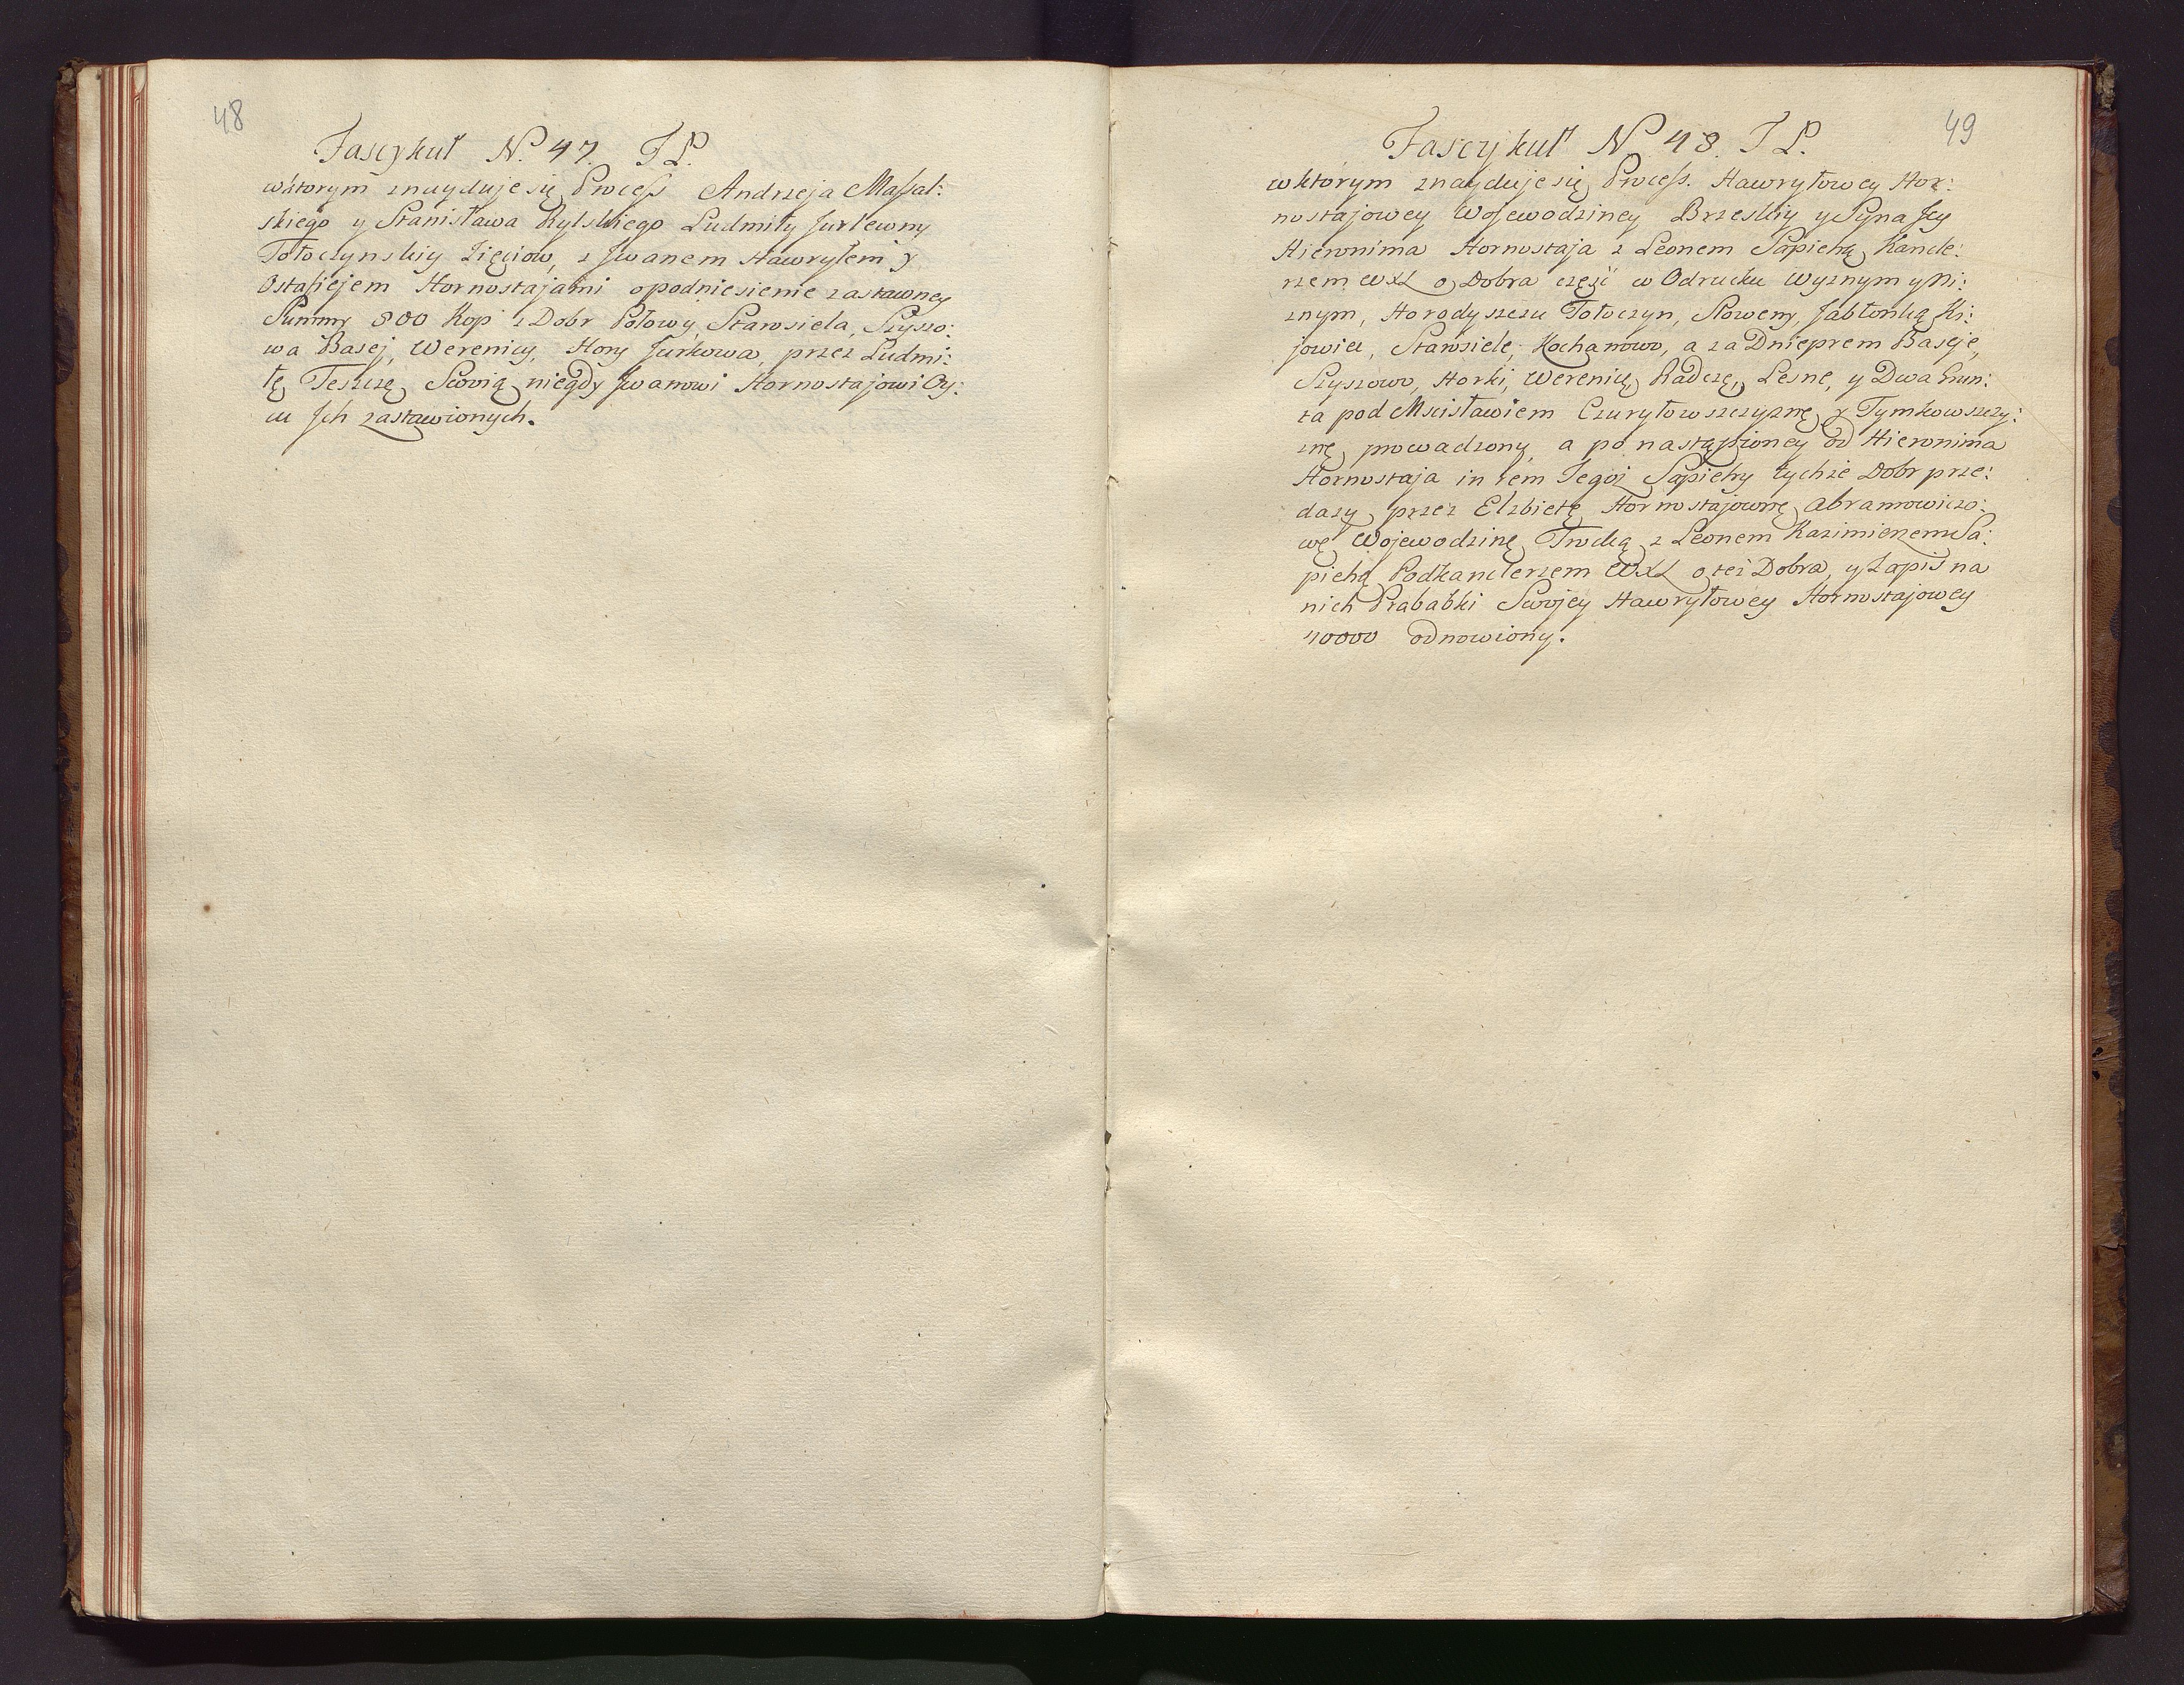 48
Fascykuł N. 47. T L.
wktorym znayduje się Process Andrzeja Massal:
skiego y Stanisława Rylskiego Ludmiły Jurlewny
Tołoczynskiy Zięciow, z Jwanem Hawryłem y
Ostafiejem Hornostajami o podniesienie zastawney
Summy 800 Kop z Dobr Połowy Starosiela, Szyszo:
wa Basej, Werenicy, Hory Jurkowa, przez Ludmi:
łę Teszczę Swoią niegdy Jwanowi Hornostajowi Oy:
cu Jch zastawionych.
49
Fascykuł N 48. T L.
w ktorym znayduje się Process. Hawryłowey Hor:
nostajowey Wojewodziney Brzeskiy y Syna Jey
Hieronima Hornostaja z Leonem Sapiehą Kancle:
rzem WXL o Dobra część w Odrucku Wyznym y Ni:
znym, Horodyszczu Tołoczyn, Słoweny, Jabłonką Ki:
jowiec, Starosiele, Kochanowo, a za Dnieprem Baseje,
Szyszowo, Horki, Werenicę, Radczę, Lesne, y Dwa Grun:
ta pod Mscisławiem Czuryłowszczyznę y Tymkowszczy:
znę prowadzony, a po nastąpioney od Hieronima
Hornostaja in rem Tegoż Sapiehy tychże Dobr prze:
dazy przez Elzbietę Hornostajownę Abramowiczo:
wę Wojewodzinę Trocką z Leonem Kazimierzem Sa:
piehą Podkanclerzem WXL o też Dobra, y Zapis na
nich Prababki Swojey Hawryłowey Hornostajowey
10000 odnowiony.